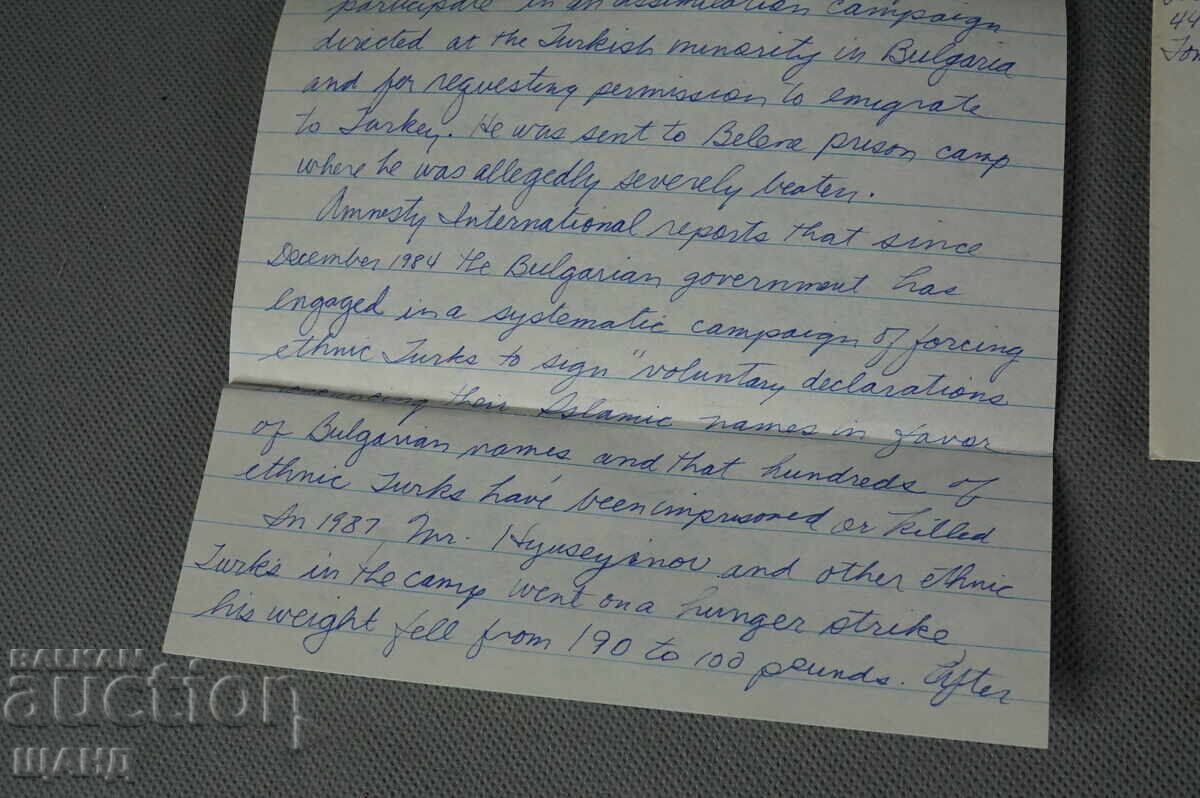 participate in an assimilation campaign
directed at the Turkish minority in Bulgaria
and for requesting permission to emigrate
to Turkey. He was sent to Belene prison camp
where he was allegedly severely beaten.
Amnesty International reports that since
December 1984 the Bulgarian government has
engaged in a systematic campaign of forcing
ethnic Turks to sign "voluntary declarations
renouncing their Islamic names in favor
of Bulgarian names and that hundreds of
ethnic Turks have been imprisoned or killed
In 1987 Mr. Hyuseyinov and other ethnic
Turks in the camp went on a hunger strike,
his weight fell from 190 to 100 pounds. After
44
BALKAN
auction
ШАНД